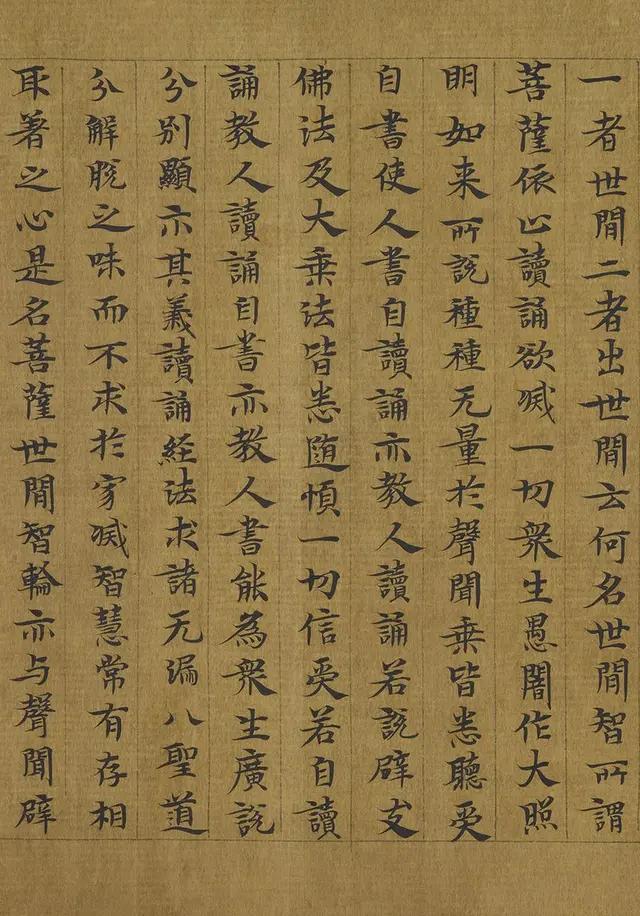 一者世間二者出世間云何名世間智所謂
菩薩依止讀誦欲滅一切衆生愚闇作大照
明如来所説種種无量於聲聞乘皆悉聽受
自書使人書自讀誦亦教人讀誦若説辟支
佛法及大乘法皆悉随順一切信受若自讀
誦教人讀誦自書亦教人書能為衆生廣説
分别顯示其義讀誦経法求諸无漏八聖道
分解脫之味而不求於寂滅智慧常有存相
取著之心是名菩薩世間智輪亦与聲聞辟